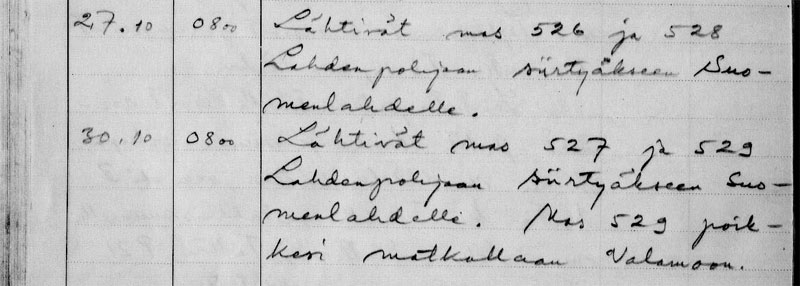 27.10 08⁰⁰ Lähtivät mas 526 ja 528
Lahdenpohjaan siirtyäkseen Suo-
menlahdelle.
30.10 08⁰⁰ Lähtivät mas 527 ja 529
Lahdenpohjaan siirtyäkseen Suo-
menlahdelle. Mas 529 poik-
kesi matkallaan Valamoon.